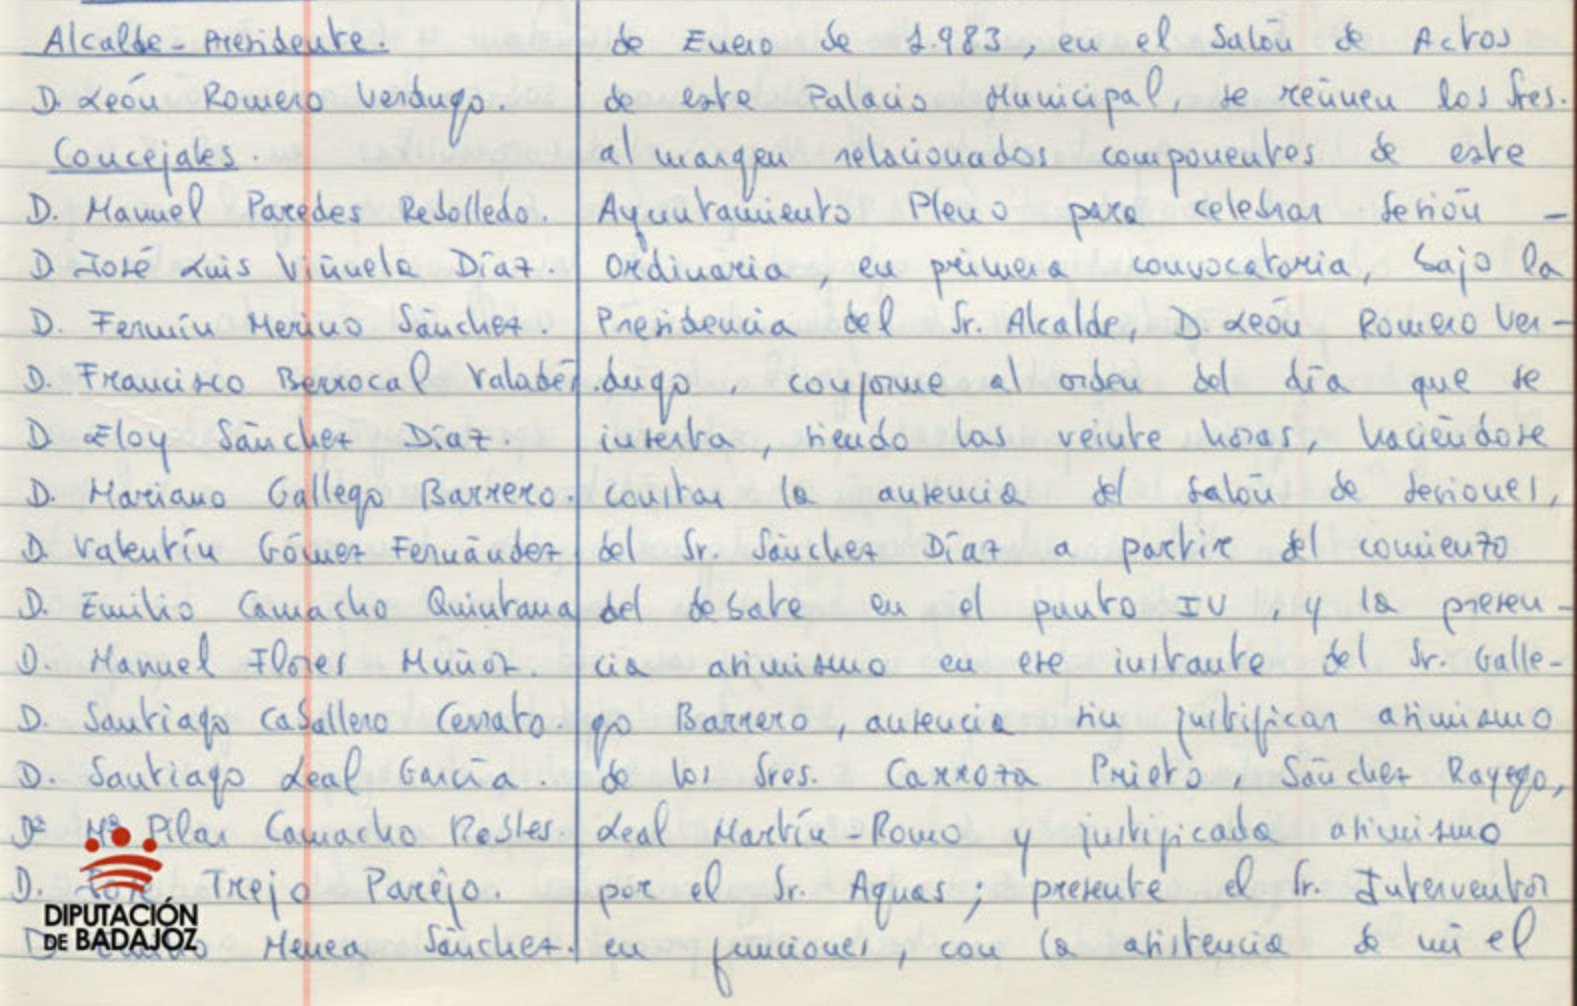 Alcalde-Presidente.
D. León Romero Verdugo.
Concejales.
D. Manuel Paredes Rebolledo.
D José Luis Viñuela Díaz.
D. Fermín Merino Sánchez.
D. Francisco Berrocal Valadés.
D Eloy Sánchez Díaz.
D. Mariano Gallego Barrero.
D. Valentín Gómez Fernández
D. Emilio Camacho Quintana
D. Manuel Flores Muñoz.
D. Santiago Caballero Cerrato.
D. Santiago Leal García.
Dª Mª Pilar Camacho Robles.
D. José Trejo Parejo.
D. Menea Sánchez.
de Enero de 1.983, en el Salón de Actos
de este Palacio Municipal, se reúnen los Sres.
al margen relacionados componentes de este
Ayuntamiento Pleno para celebrar Sesión -
Ordinaria, en primera convocatoria, bajo la
Presidencia del Sr. Alcalde, D León Romero Ver-
dugo, conforme al orden del día que se
inserta, siendo las veinte horas, haciéndose
constar la ausencia del Salón de Sesiones,
del Sr. Sánchez Díaz a partir del comienzo
del debate en el punto IV, y la presen-
cia asimismo en ese instante del Sr. Galle-
go Barrero, ausencia sin justificar asimismo
de los Sres. Carroza Prieto, Sánchez Rayego,
Leal Martín-Romo y justificada asimismo
por el Sr. Aguas; presente el Sr. Interventor
en funciones, con la asistencia de mi el
DIPUTACIÓN
DE BADAJOZ